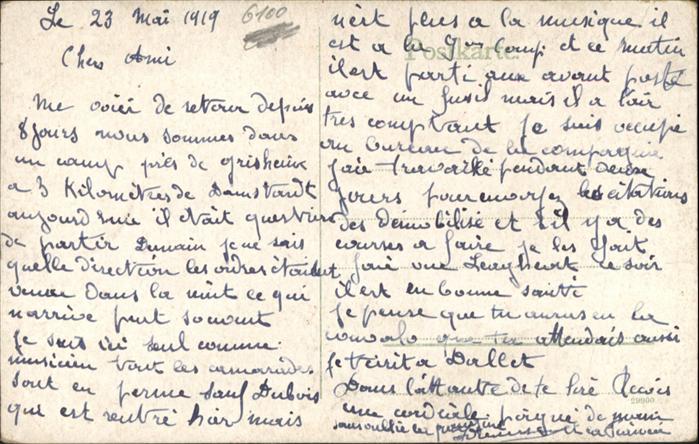 Le 23 Mai 1919
6100
Cher Ami
Me voici de retour depuis
8 jours nous sommes dans
un camp près de grisheim
a 3 Kilomètres de Damstardt
aujourd'huie il était question
de partir Demain je ne sais
quelle direction les ordres étaient
venue Dans la nuit ce qui
narrive peut souvent
Je suis ici seul comme
musicien tout les camarades
sont en perme sauf Dubois
qui est rentré hier mais
n'ert plus a la musique il
est a la 7me Comp. et ce matin
Postkarte
il est parti aux avant poste
avec un fusil mais il a l'air
tres comptant Je suis occupé
au bureau de la compagnie
jaie travaillé pendant deux
jours pour les citations
des démobilisé et s'il y a des
courses a faire je les fait
jaie vue ce soir
il est en bonne santé
Je pense que tu auras eu la
convalo que tu attendais aussi
Je t'écrit a Dallet
Dans l'attente de te lire Reçois
29900
une cordiale poigné de main
sans oublier